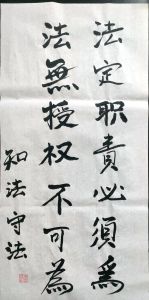 法定职責必須為
法無授权不可為
知法守法